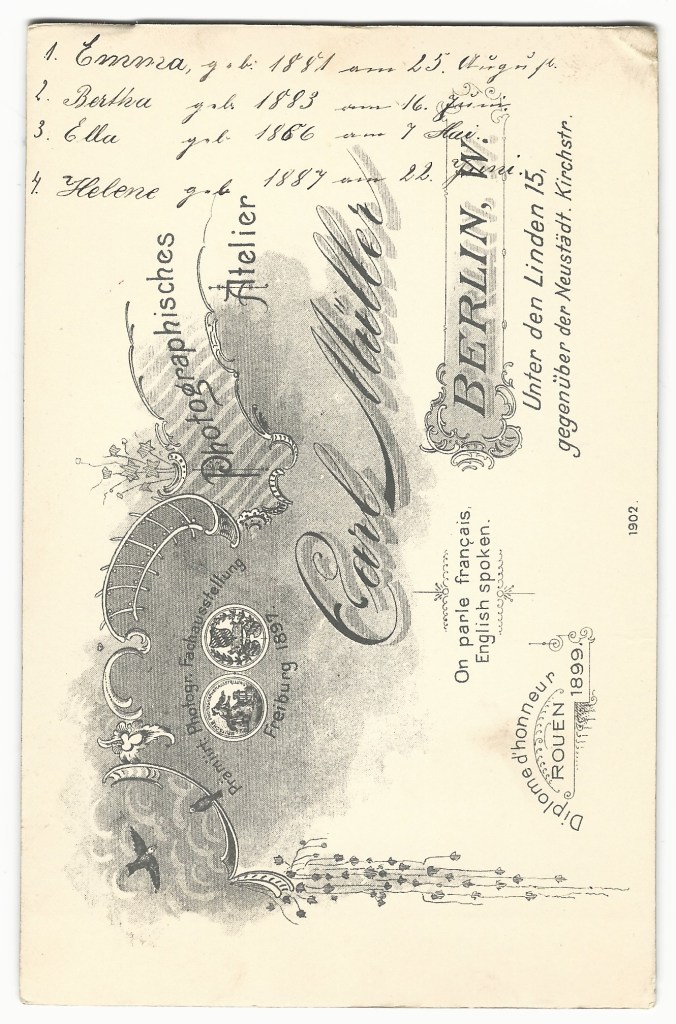 1. Emma, geb. 1881 am 25. August.
2. Bertha geb. 1883 am 16. Juni.
3. Ella geb. 1866 am 7 Mai.
4. Helene geb 1887 am 22. Juni.
Photographisches
Atelier
Carl Müller
BERLIN, W.
Unter den Linden 15,
gegenüber der Neustädt. Kirchstr.
Prämiirt Photogr. Fachausstellung
Freiburg 1897.
On parle français,
English spoken.
Diplome d'honneur
ROUEN 1899.
1902.